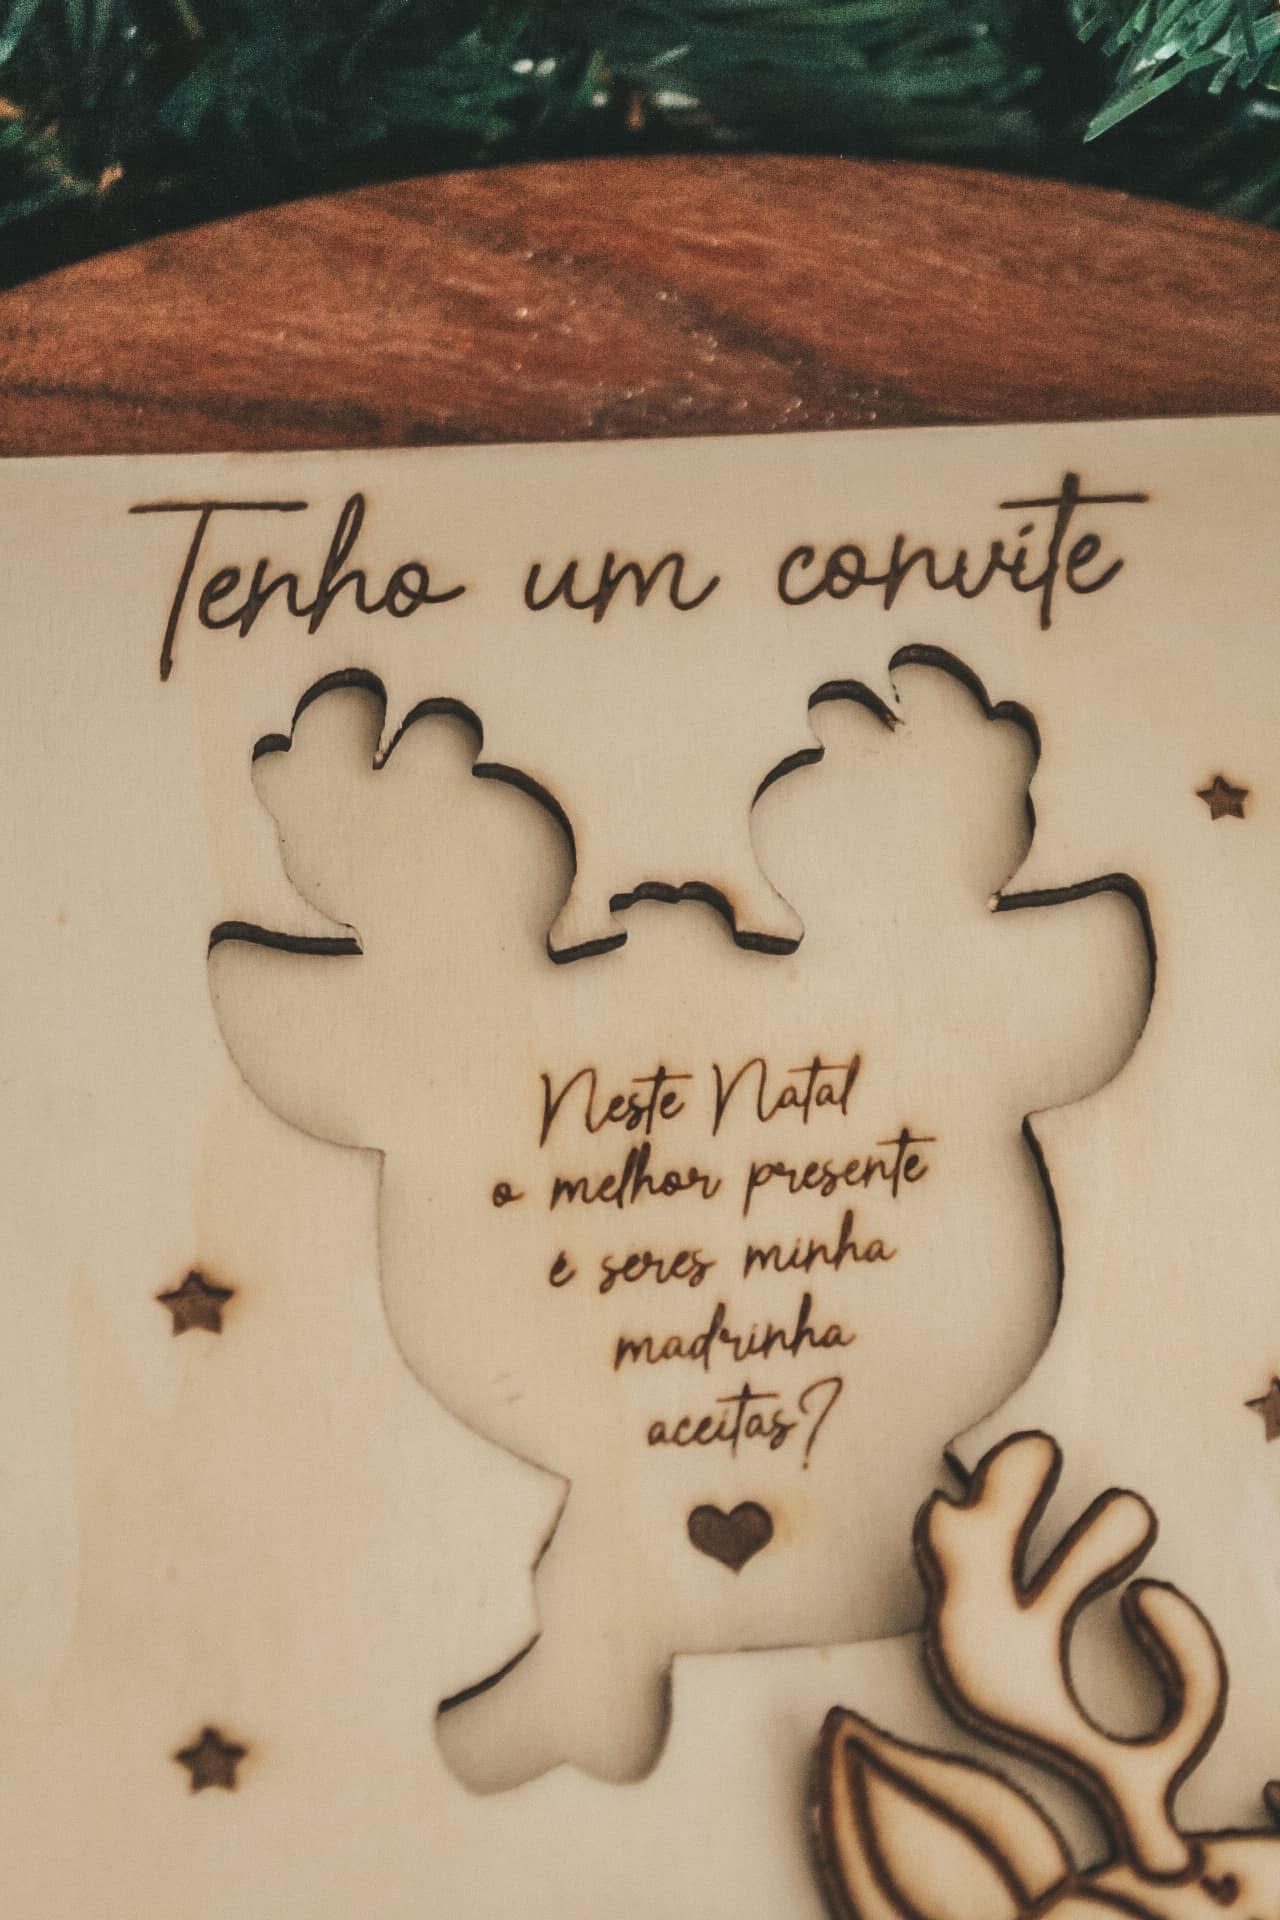 Tenho um convite
Neste Natal
o melhor presente
é seres minha
madrinha
aceitas?